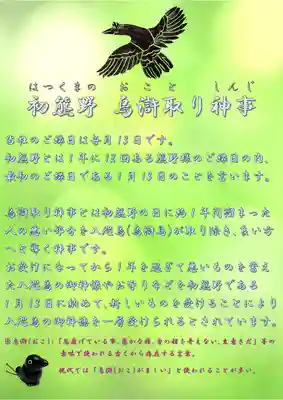 はつくまの　おことと　しんじ
初熊野 烏滸取り神事
当社のご縁日は毎月13日です。
初熊野とは1年に12回ある熊野様のご縁日の内、
最初のご縁日である1月13日のことを言います。
烏滸取り神事とは初熊野の日に約1年間溜まった
人の悪い部分を八咫烏(烏滸烏)が取り除き、良い方
へと導く神事です。
お受けになってから1年を過ぎて悪いものを咥え
た八咫烏の御神像やお守りなどを初熊野である
1月13日に納めて、新しいものを受けることにより
八咫烏の御神徳を一層受けられるとされています。
※烏滸(おこ):「馬鹿げている事、愚か な様、身の程を弁えない、生意きだ」等の
意味で使われる古くから存在する言葉。
現代では「烏滸(おこ)がましい」と使われることが多い。